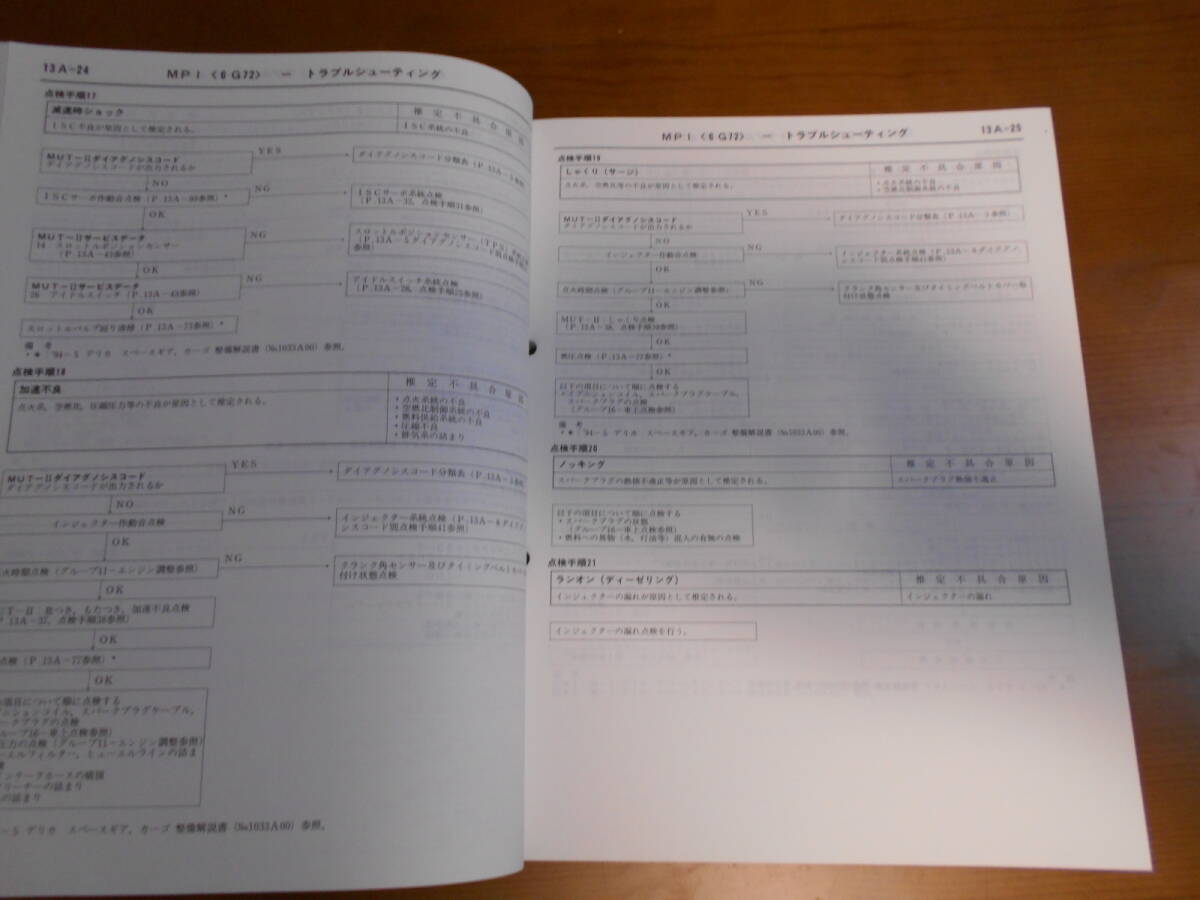 13A-24
MPI〈6G72〉 － トラブルシューティング
点検手順17
減速時ショック
推定不具合原因
ISC不良が原因として推定される。
ISC系統の不良
MUT-IIダイアグノシスコード
ダイアグノシスコードが出力されるか
YES
ダイアグノシスコード分類表（P.13A-
NO
ISCサーボ作動音点検（P.13A-80参照）*
NG
ISCサーボ系統点検
（P.13A-32，点検手順31参照）
OK
MUT-IIサービスデータ
14 スロットルポジションセンサー
（P.13A-43参照）
NG
スロットルポジションセンサー（TPS）
（P.13A-5ダイアグノシスコード別点検手順
参照）
OK
MUT-IIサービスデータ
26 アイドルスイッチ（P.13A-43参照）
NG
アイドルスイッチ系統点検
（P.13A-28，点検手順25参照）
OK
スロットルバルブ回り清掃（P.13A-73参照）*
備 考
・*：'94-5 デリカ スペースギア，カーゴ 整備解説書（№1033A00）参照。
点検手順18
加速不良
推定不具合原因
点火系，空燃比，圧縮圧力等の不良が原因として推定される。
・点火系統の不良
・空燃比制御系統の不良
・燃料供給系統の不良
・圧縮不良
・排気系の詰まり
MUT-IIダイアグノシスコード
ダイアグノシスコードが出力されるか
YES
ダイアグノシスコード分類表（P.13A-5参照
NO
インジェクター作動音点検
NG
インジェクター系統点検（P.13A-6ダイアグ
シスコード別点検手順41参照）
OK
火時期点検（グループ11-エンジン調整参照）
NG
クランク角センサー及びタイミングベルトカバー
付け状態点検
OK
UT-II：息つき，もたつき，加速不良点検
P.13A-37，点検手順38参照）
OK
点検（P.13A-77参照）*
OK
項目について順に点検する
グニションコイル，スパークプラグケーブル，
ークプラグの点検
ループ16-車上点検参照）
圧力の点検（グループ11-エンジン調整参照）
ーエルフィルター，ヒューエルラインの詰ま
ンテークホースの破損
クリーナーの詰まり
の詰まり
-5 デリカ スペースギア，カーゴ 整備解説書（№1033A00）参照。
MPI〈6G72〉 － トラブルシューティング
13A-25
点検手順19
しゃくり（サージ）
推定不具合原因
点火系，空燃比等の不良が原因として推定される。
・点火系統の不良
・空燃比制御系統の不良
MUT-IIダイアグノシスコード
ダイアグノシスコードが出力されるか
YES
ダイアグノシスコード分類表（P.13A-5参照）
NO
インジェクター作動音点検
NG
インジェクター系統点検（P.13A-6ダイアグノ
シスコード別点検手順41参照）
OK
点火時期点検（グループ11-エンジン調整参照）
NG
クランク角センサー及びタイミングベルトカバー取
付け状態点検
OK
MUT-II：しゃくり点検
（P.13A-38，点検手順39参照）
OK
燃圧点検（P.13A-77参照）*
OK
以下の項目について順に点検する
・イグニションコイル，スパークプラグケーブル，
スパークプラグの点検
（グループ16-車上点検参照）
備 考
・*：'94-5 デリカ スペースギア，カーゴ 整備解説書（№1033A00）参照。
点検手順20
ノッキング
推定不具合原因
スパークプラグの熱価不適正等が原因として推定される。
スパークプラグ熱価不適正
以下の項目について順に点検する
・スパークプラグの状態
（グループ16-車上点検参照）
・燃料への異物（水，灯油等）混入の有無の点検
点検手順21
ランオン（ディーゼリング）
推定不具合原因
インジェクターの漏れが原因として推定される。
インジェクターの漏れ
インジェクターの漏れ点検を行う。